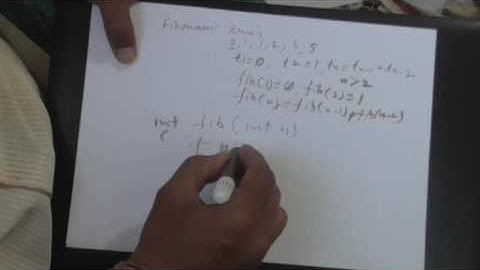 Fibonacci series
0, 1, 1, 2, 3, 5
t1=0, t2=1, tn=tn-1+tn-2
n>2
fib(1)=0, fib(2)=1
fib(n)=fib(n-1)+fib(n-2)
int fib(int n)
{
if n